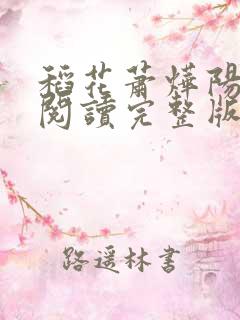 稻花蕭燁陽
閱讀完整版
路遥林書